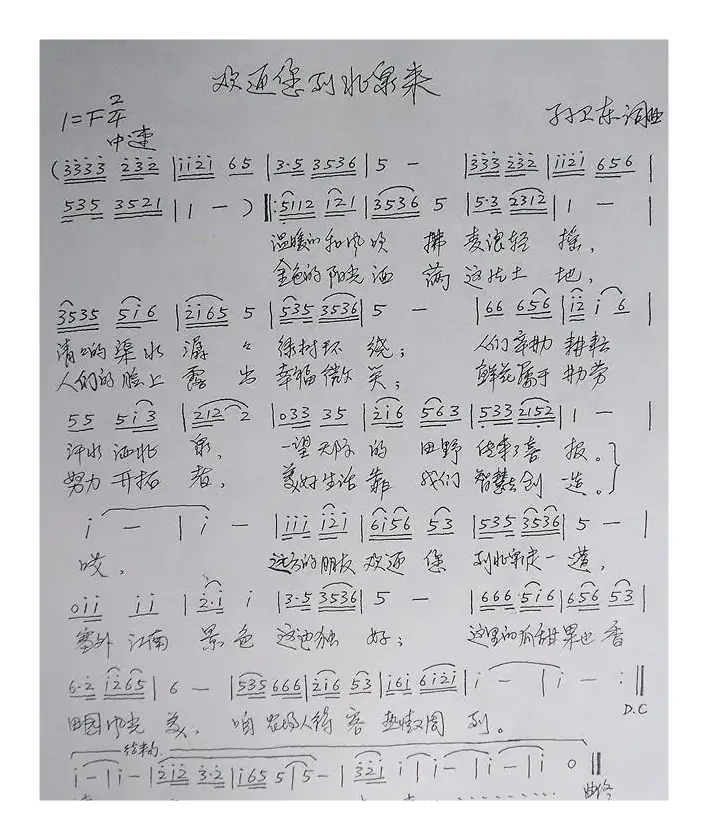 欢迎您到北泉来
1=F 2/4
中速
孙卫东词曲
(3333 232 | 1121 65 | 3·5 3536 | 5 — | 333 232 | 1121 656 |
535 3521 | 1 — ) ‖: 5112 121 | 3536 5 | 5·3 2312 | 1 — |
温暖的和风吹 拂 麦浪轻 摇,
金色的阳光洒 满 这片土 地,
3535 516 | 2165 5 | 535 3536 | 5 — | 66 656 | 12 1 6 |
清清的渠水 潺 々 绿树环 绕; 人们辛勤 耕耘
人们的脸上 露 出 幸福微 笑; 鲜花属于 勤劳
55 513 | 212 2 | 033 35 | 216 563 | 533 2152 | 1 — |
汗水洒北 泉, 一望无际 的 田野 传来了喜 报。
努力开拓 者, 美好生活 靠 我们 智慧去创 造。
1 — | 1 — | 111 121 | 6156 53 | 535 3536 | 5 — |
哎, 远方的朋友 欢迎 您 到北泉走一 遭,
011 11 | 2·1 1 | 3·5 3536 | 5 — | 666 516 | 656 53 |
塞外 江南 景 色 这边独 好; 这里的瓜甜果也 香
6·2 1265 | 6 — | 535 666 | 216 53 | 161 6121 | 1 — | 1 — :‖
田园风光 美, 咱农场人待 客 热情周 到。
D.C
结束句
1 — | 1 — | 212 3·2 | 165 5 | 5 — | 321 1 | 1 — | 1 — | 1 0 ‖
曲终